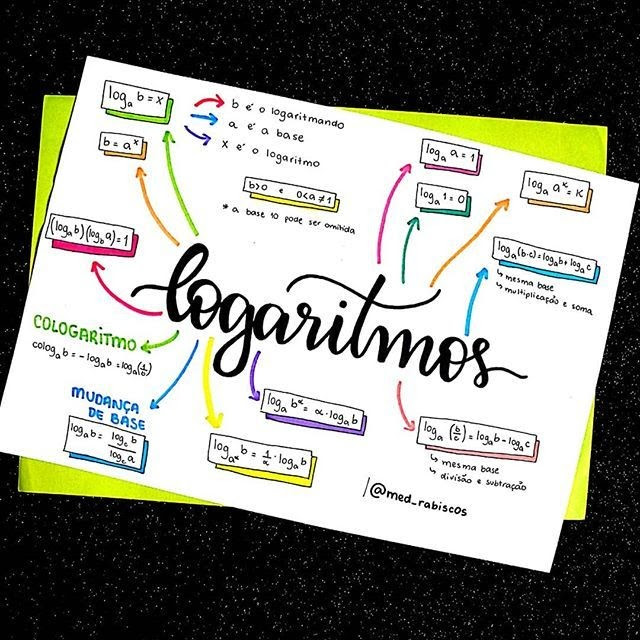 logₐ b = x
b é o logaritmando
a é a base
x é o logaritmo
b = aˣ
b>0 e 0<a≠1
* a base 10 pode ser omitida
logₐ a = 1
logₐ 1 = 0
logₐ aᴷ = K
(logₐ b)(log_b a) = 1
logₐ (b·c) = logₐ b + logₐ c
↳ mesma base
↳ multiplicação e soma
logaritmos
COLOGARITMO
cologₐ b = - logₐ b = logₐ (1/b)
MUDANÇA
DE BASE
logₐ b = log_c b
log_c a
logₐ b^α = α · logₐ b
log_a^α b = 1/α · logₐ b
logₐ (b/c) = logₐ b - logₐ c
↳ mesma base
↳ divisão e subtração
@med_rabiscos